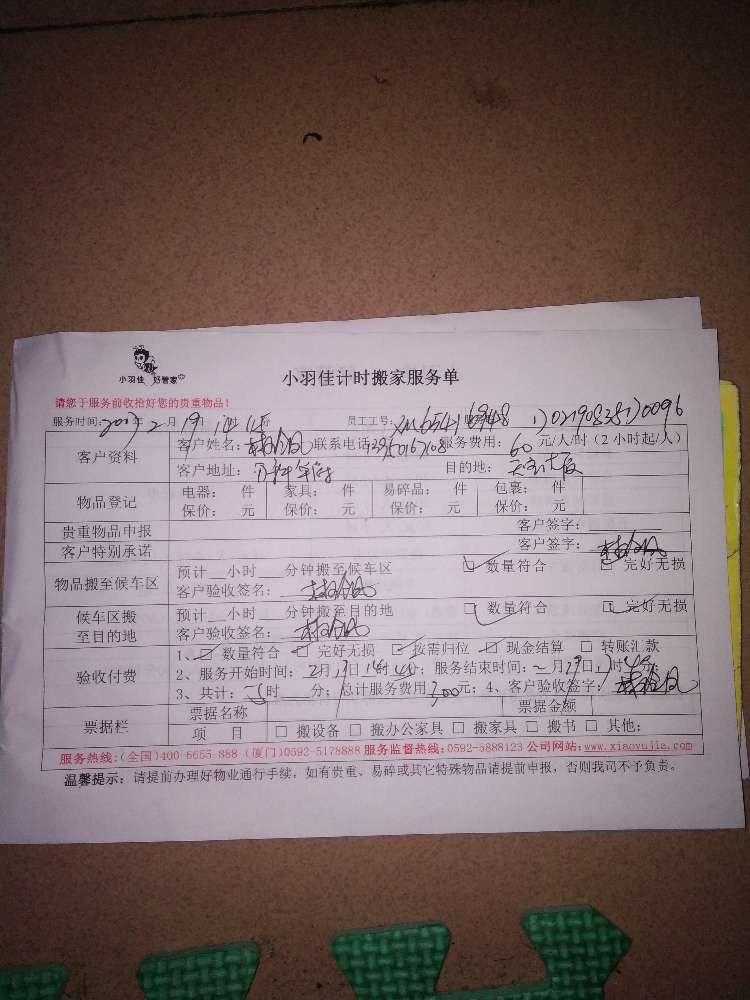 小羽佳 好管家
小羽佳计时搬家服务单
请您于服务前收拾好您的贵重物品！
服务时间：2017年2月19日 员工工号：
客户资料 客户姓名： 联系电话 服务费用：60元/人/时（2小时起/人）
客户地址： 目的地：
物品登记 电器： 件 家具： 件 易碎品： 件 包裹： 件
保价： 元 保价： 元 保价： 元 保价： 元
贵重物品申报 客户签字：
客户特别承诺 客户签字：
物品搬至候车区 预计__小时___分钟搬至候车区 数量符合 完好无损
客户验收签名：
候车区搬至目的地 预计__小时___分钟搬至目的地 数量符合 完好无损
客户验收签名：
验收付费 1、数量符合 完好无损 按需归位 现金结算 □ 转账汇款
2、服务开始时间：2月19日 时 分；服务结束时间：2月19日 时 分；
3、共计： 时 分；总计服务费用300元；4、客户验收签字：
票据栏 票据名称 票据金额
项 目 □ 搬设备 □ 搬办公家具 □ 搬家具 □ 搬书 □ 其他：
服务热线：（全国）400-6655-888（厦门）0592-5178888 服务监督热线：0592-5888123 公司网站：www.xiaoyujia.com
温馨提示：请提前办理好物业通行手续，如有贵重、易碎或其它特殊物品请提前申报，否则我司不予负责。